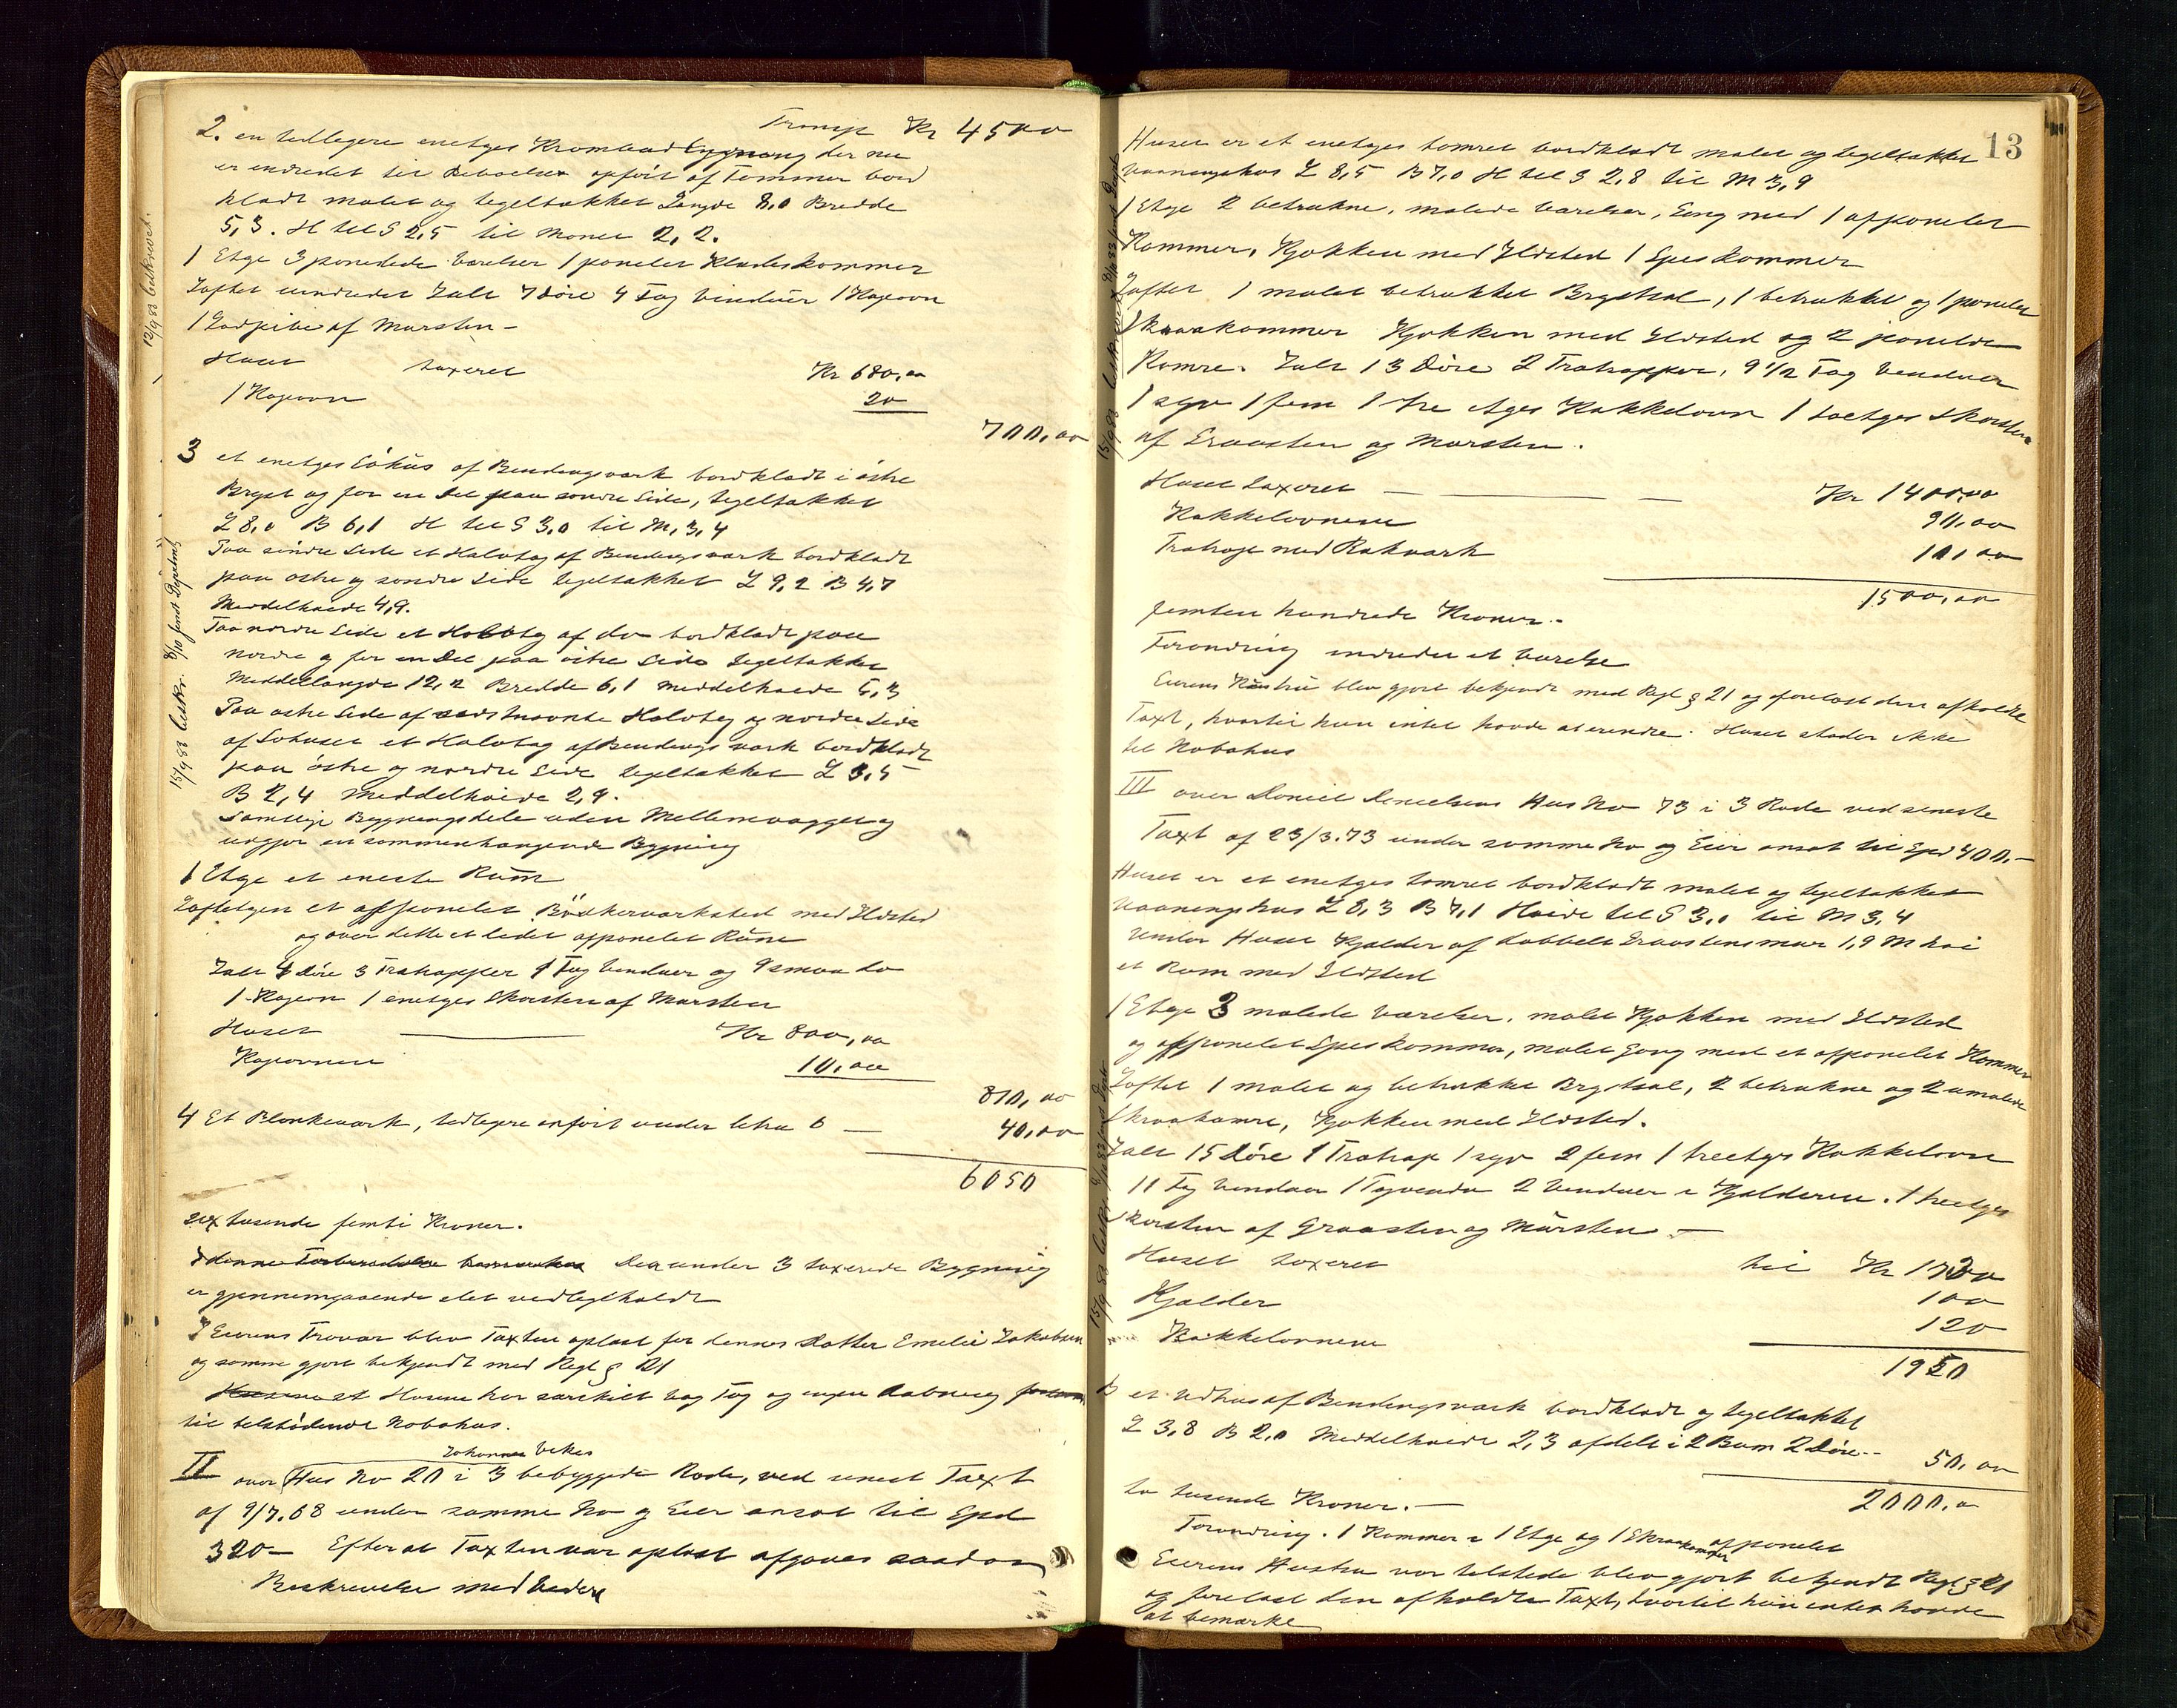 Transp Kr 4500
2. en tidligere enetges Krambodbygning der nu
er indredet til Beboelse opfört af Tømmer bord
klædt malet og tegeltakket Længde 8,0 Bredde
5,3. H til S 2,5 til Monet 2,2.
1 Etge 3 panelede Værelser 1 panelet Kladeskammer
Loftet uindredet Ialt 7 Döre 4 Fag Vinduer 1 Kogeovn
1 af Mursten -
Huset taxeret Kr 680,00
1 Kogeovn 20
700,00
3 et enetges Söhus af Bendingsværk bordklædt i östre
Bryst og for en Del paa söndre Side, tegeltakket
L 8,0 B 6,1 H til S 3,0 til M, 3,4
Paa söndre Side et Halvtag af Bendingsværk bordklædt
paa östre og söndre Side tegeltakket L 9,2 B 4,7
Meddelhøide 4,9.
Paa nordre Side et Halvtag af do bordklædt paa
nordre og for en Del paa östre Side tegeltakket
Meddellængde 12,2 Bredde 6,1 Meddelhøide 5,3
Paa östre Side af sidstnævnte Halvtag og nordre Side
af Söhuset et Halvtag af Bendingsværk bordklædt
paa östre og nordre Side tegeltakket L 3,5
B 2,4 Meddelhöide 2,9.
Samtlige Bygningsdele uden Mellemvægge og
udgjør en sammenhængende Bygning
1 Etge et eneste Rum
Loftetgen et afpanelet Bökkerværksted med Ildsted
og over dette et lidet afpanelet Rum
Ialt 4 Döre 3 Trætrapper 1 Fag Vinduer og 9 smaa do
1 Kogeovn 1 enetges Skorsten af Mursten
Huset Kr 800,00
Kogeovnen 10,00
810,00
4 Et Plankeværk, tidligere anfört under litra b 40,00
6050
sex tusende femti Kroner.
I denne Forbindelse bemærkes Den under 3 taxerede Bygning
er gjennemgaaende slet vedligeholdt
I Eierens Fravær blev Taxten oplæst for dennes Datter Emelie Jakobsen
og samme gjort bekjendt med Regl § 21
at Husene har særskilt Væg Tag og ingen Aabning
til tilstödende Nabohus.
Johannes Vekes
II over Hus No 20 i 3 bebyggede Rode, ved senest Taxt
af 9/7.68 under samme No og Eier ansat til Spd
320- Efter at Taxten var oplæst afgaves saadan
Beskrivelse med Videre
12/9 83 beskrevet.
15/9 83 beskr. 8/10 sendt Depeletn
13
Huset er et enetges tømret bordklædt malet og tegeltakket
vaaningshus L 8,5 B 7,0 H til S 2,8 til M 3,9
1 Etge 2 betrukne, malede Værelser, Gang med 1 afpanelet
Kammer, Kjøkken med Ildsted 1 Speskammer
Loftet 1 malet betrukket Brystsal, 1 betrukket og 1 panelet
Skraakammer Kjøkken med Ildsted og 2 panelede
Kamre. Ialt 13 Döre 2 Trætrapper, 9 1/2 Fag Vinduer
1 syv 1 fem 1 tre etges Kakkelovn 1 toetges Skorsten
af Graasten og Mursten.
Huset taxeret Kr 1400,00
Kakkelovnene 90,00
Trætrape med Rækværk 10,00
1500,00
femten hundrede Kroner.
Forandring indredet et Værelse
Eierens Hustru blev gjort bekjendt med Regl § 21 og oplæst den afholdte
Taxt, hvortil hun intet havde at erindre. Huset støder ikke
til Nabohus
III over Daniel Danielsens Hus No 73 i 3 Rode ved seneste
Taxt af 23/3.73 under samme No og Eier ansat til Spd 400.-
Huset er et enetges tømret bordklædt malet og tegeltakket
vaaningshus L 8,3 B 7,1 Høide til S 3,0 til M 3,4
Under Huset Kjælder af dobbelt Graastensmur 1,9 M höi
et Rum med Ildsted
1 Etge 3 malede Værelser, malet Kjøkken med Ildsted
og afpanelet Speskammer, malet Gang med et afpanelet Kammer
Loftet 1 malet og betrukket Brystsal, 2 betrukne og 2 umalede
Skraakamre, Kjøkken med Ildsted.
Ialt 15 Döre 1 Trætrap 1 syv 2 fem 1 treetges Kakkelovn
11 Fag Vinduer 1 Tagvindu 2 Vinduer i Kjælderen. 1 treetges
skorsten af Graasten og Mürsten -
Huset taxeret til Kr 1730
Kjælder 100
Kakkelovnene 120
1950
B et Udhus af Bendingsværk bordklædt og tegeltakket
L 3,8 B 2,0 Meddelhøide 2,3 afdelt i 2 Rum 2 Döre 50,00
2000,00
to tusende Kroner. -
Forandring. 1 Kammer i 1 Etge og 1 Skraakammer afpanelet
Eierens Hustru var tilstede blev gjort bekjendt Regl § 21
og forelæst den afholdte Taxt, hvortil hun intet havde
at bemærke
15/9 83 beskrevet 8/10 83 sendt Dept
15/9 83 beskr. 8/10 83 sendt Dept